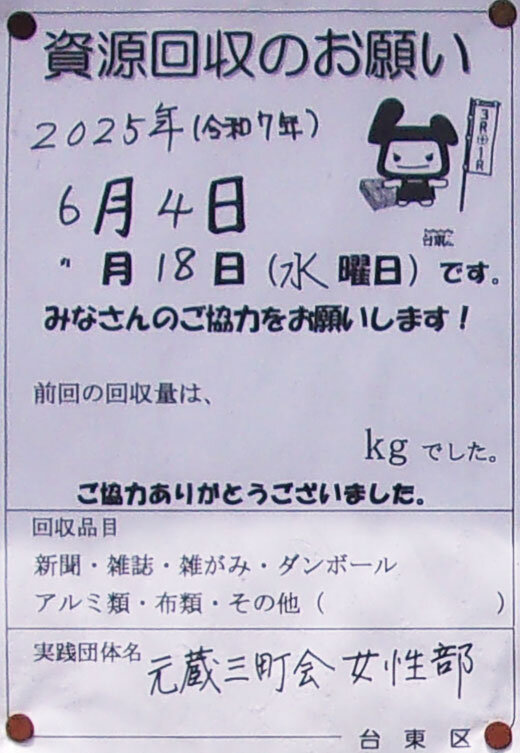 資源回収のお願い
2025年(令和7年)
3R+1R
6月4日
〃月18日(水曜日)です。
みなさんのご協力をお願いします！
前回の回収量は、
kgでした。
ご協力ありがとうございました。
回収品目
新聞・雑誌・雑がみ・ダンボール
アルミ類・布類・その他（　　　　）
実践団体名 元蔵三町会 女性部
台東区